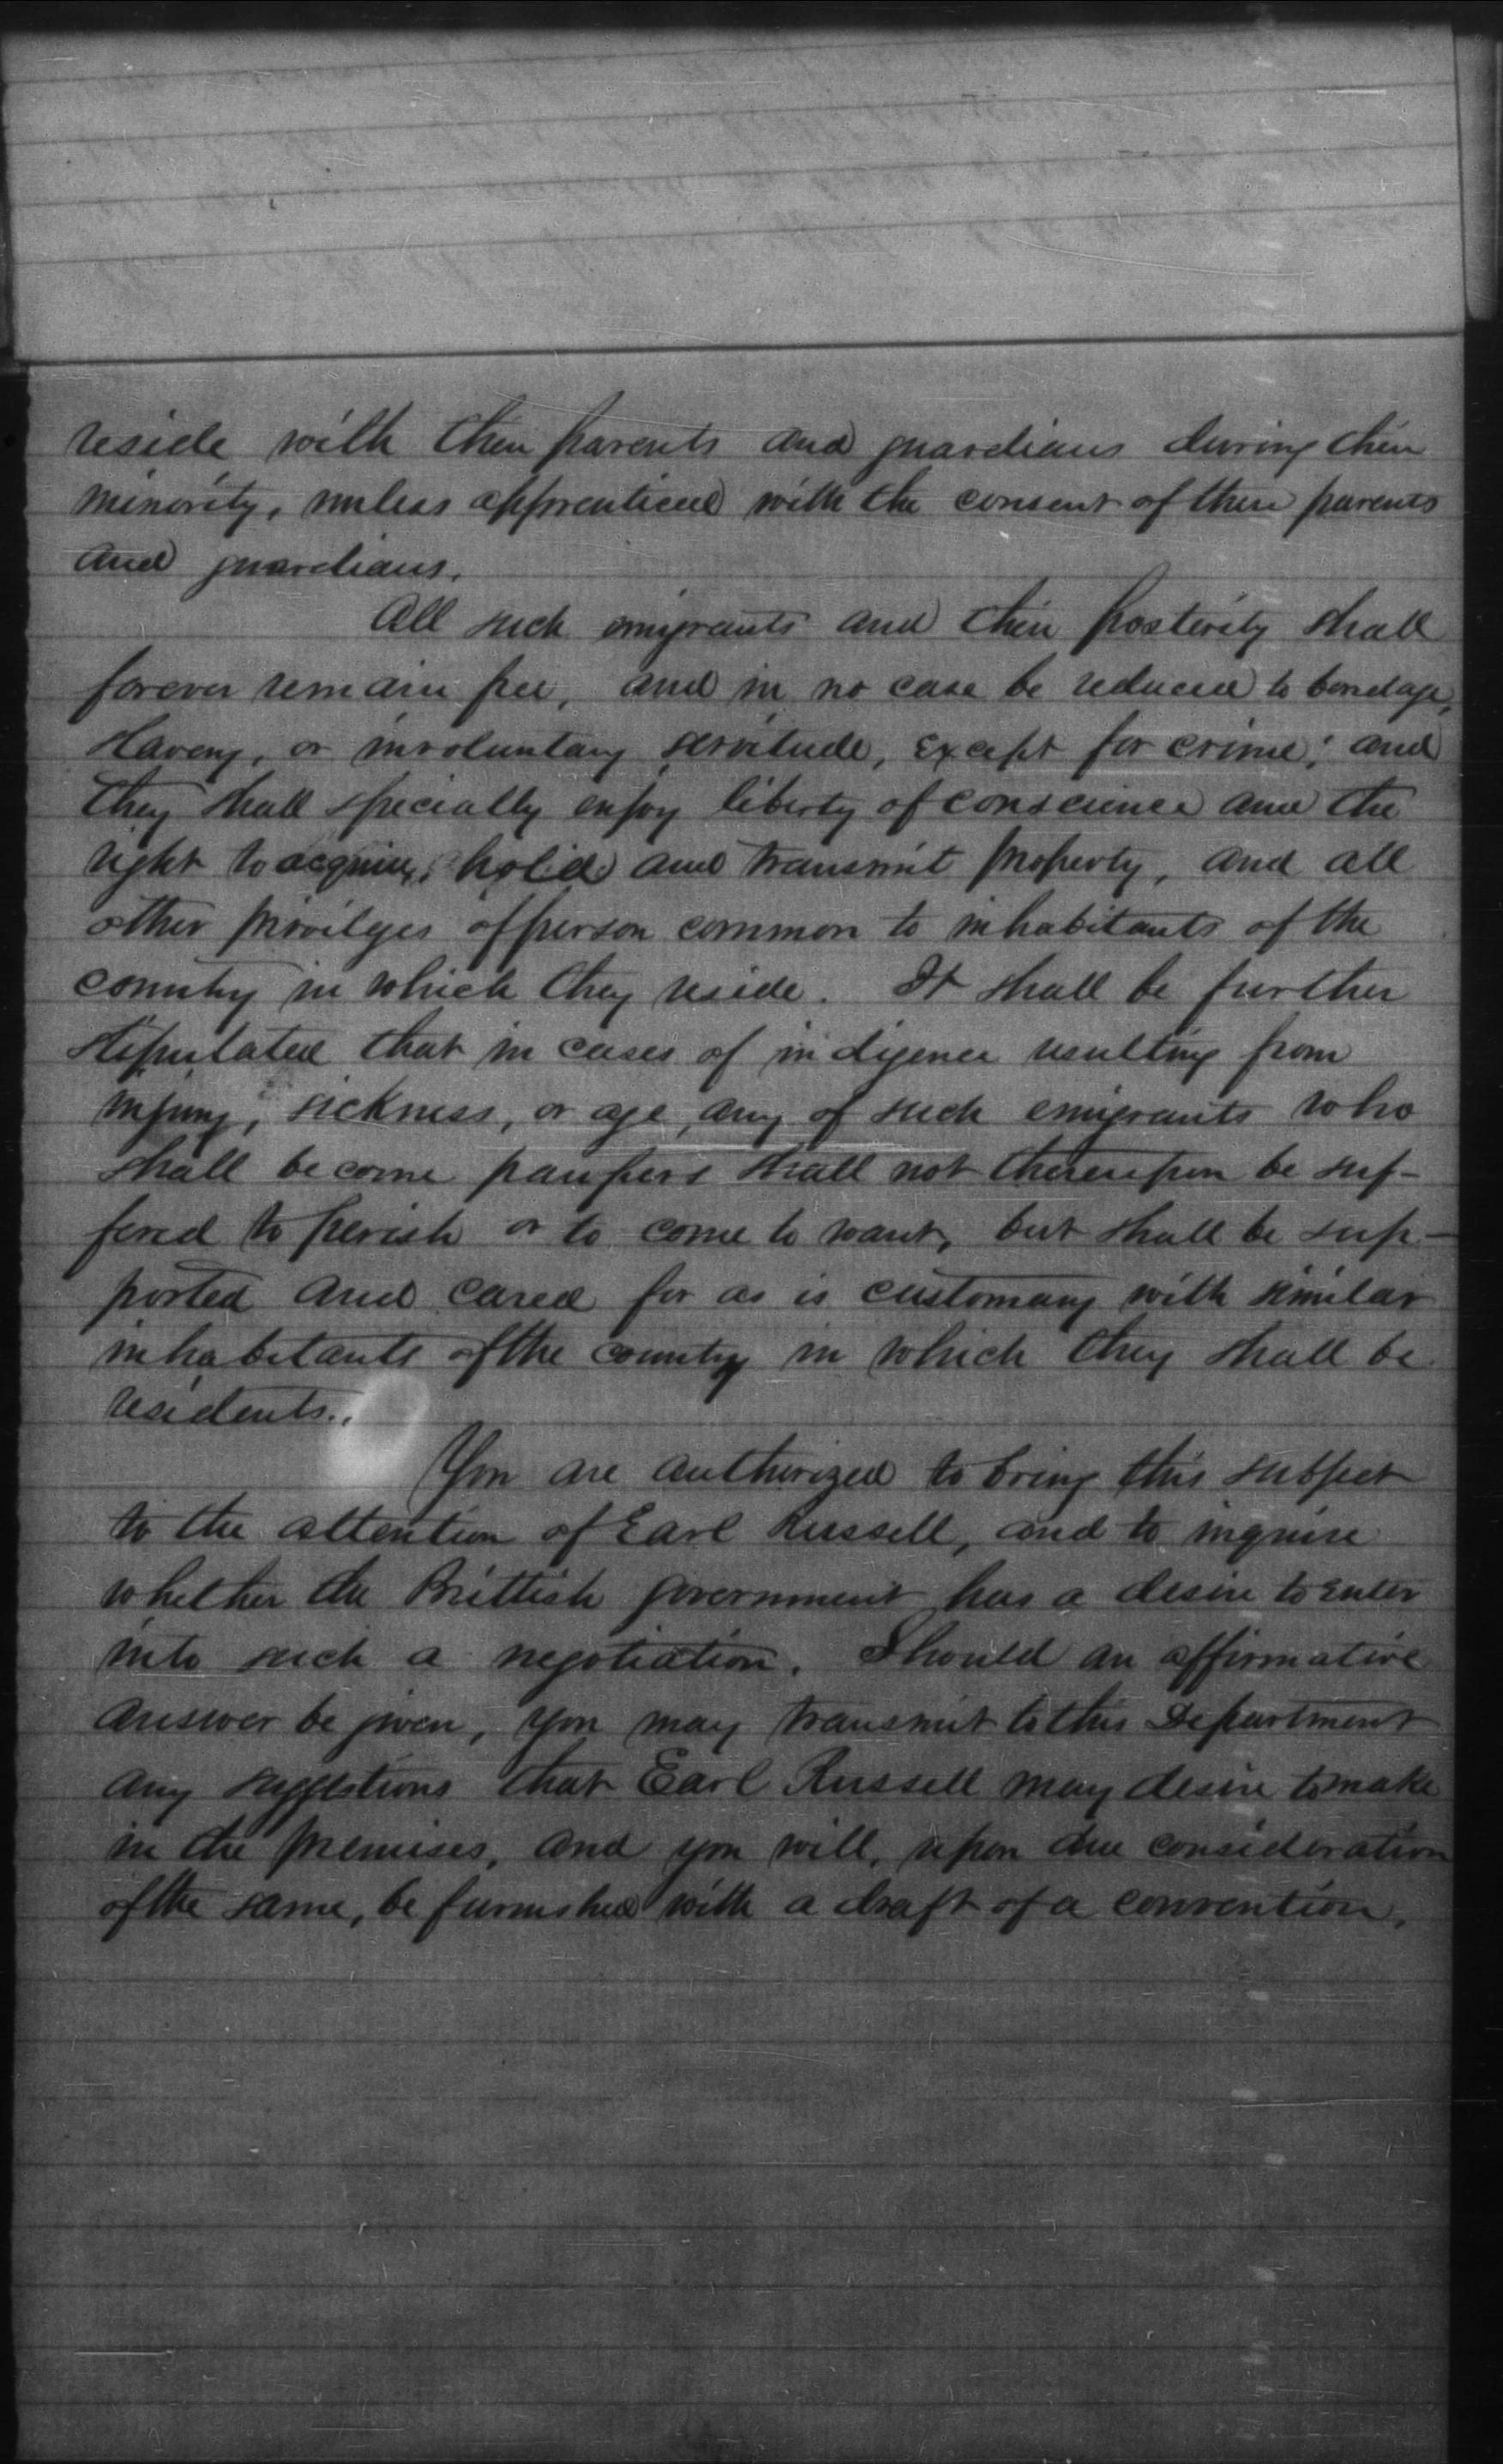 reside with their parents and guardians during their
minority, unless apprenticed with the consent of their parents
and guardians.
All such emigrants and their posterity shall
forever remain free, and in no case be reduced to bondage,
slavery, or involuntary servitude, except for crime; and
they shall specially enjoy liberty of conscience and the
right to acquire, hold and transmit property, and all
other privileges of person common to inhabitants of the
country in which they reside. It shall be further
stipulated that in cases of indigence resulting from
injury, sickness, or age, any of such emigrants who
shall become paupers shall not thereupon be suf-
fered to perish or to come to want, but shall be sup-
ported and cared for as is customary with similar
inhabitants of the country in which they shall be
residents.
You are authorized to bring this subject
to the attention of Earl Russell, and to inquire
whether the Brittish government has a desire to enter
into such a negotiation. Should an affirmative
answer be given, you may transmit to this Department
any suggestions that Earl Russell may desire to make
in the premises, and you will, upon due consideration
of the same, be furnished with a draft of a convention.